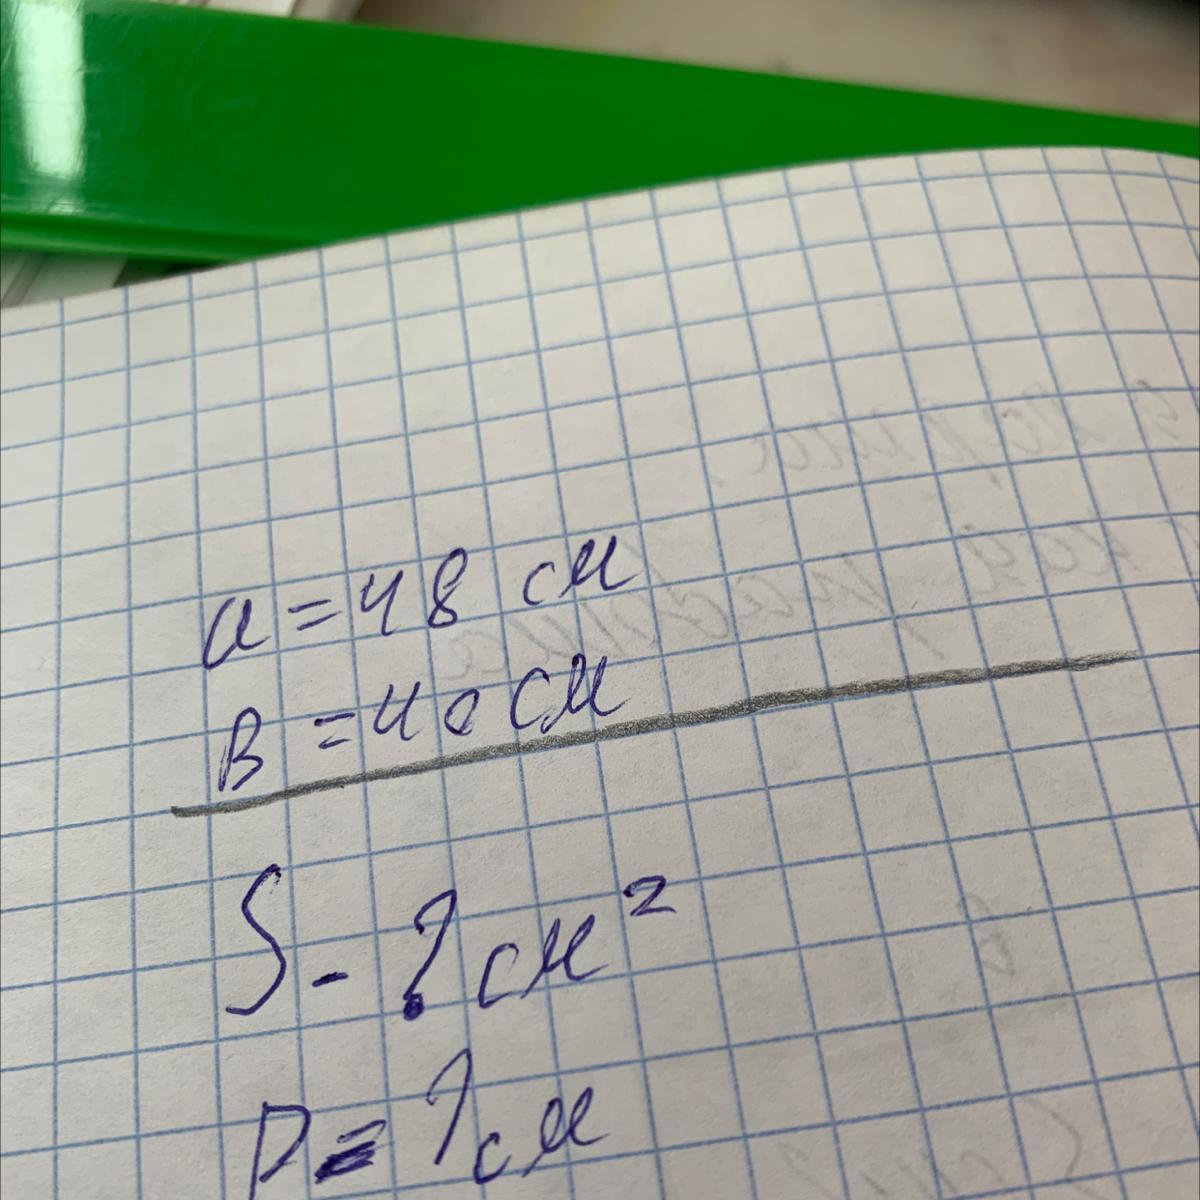 a = 48 см
в = 40 см
S - ? см²
P = ? см